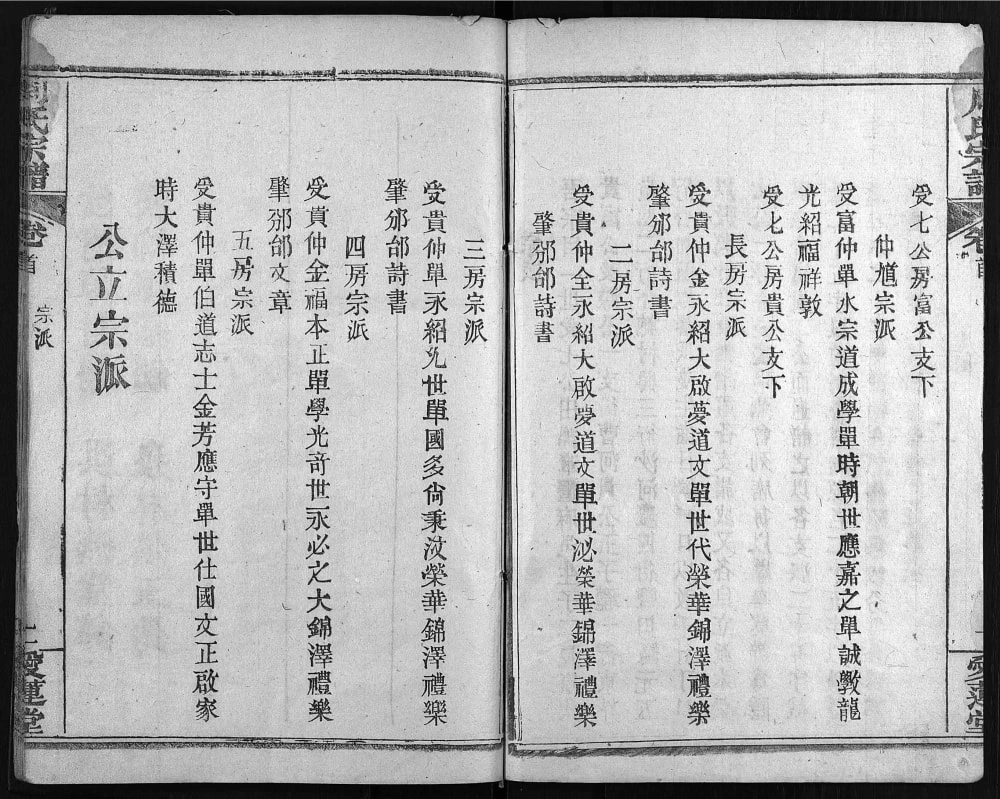 周氏宗譜
卷首
愛蓮堂
受七公房富公支下
仲尳宗派
受富仲單永宗道成學單時朝世應嘉之單誠斆龍
光紹福祥敦
受七公房貴公支下
長房宗派
受貴仲金永紹大啟夢道文單世代榮華錦澤禮樂
肇邠邰詩書
二房宗派
受貴仲全永紹大啟夢道文單世泌榮華錦澤禮樂
肇邠邰詩書
三房宗派
受貴仲單永紹光世單國多尙秉汶榮華錦澤禮樂
肇邠邰詩書
四房宗派
受貴仲金福本正單學光奇世永必之大錦澤禮樂
肇邠邰文章
五房宗派
受貴仲單伯道志士金芳應守單世仕國文正啟家
時大澤積德
公立宗派
周氏宗譜
卷首
宗派
二
愛蓮堂